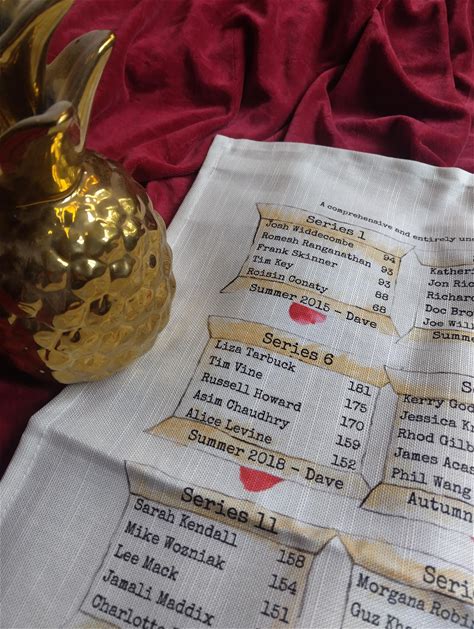 A comprehensive and entirely un
Series 1
Josh Widdecombe 94
Romesh Ranganathan 93
Frank Skinner 93
Tim Key 88
Roisin Conaty 68
Summer 2015 - Dave
Kather
Jon Ric
Richard
Doc Bro
Joe Wil
Summe
Series 6
Liza Tarbuck 181
Tim Vine 175
Russell Howard 170
Asim Chaudhry 159
Alice Levine 152
Summer 2018 - Dave
S
Kerry Go
Jessica Kn
Rhod Gilb
James Acas
Phil Wang
Autumn
Series 11
Sarah Kendall 158
Mike Wozniak 154
Lee Mack 151
Jamali Maddix
Charlotte
Seri
Morgana Robi
Guz Kha